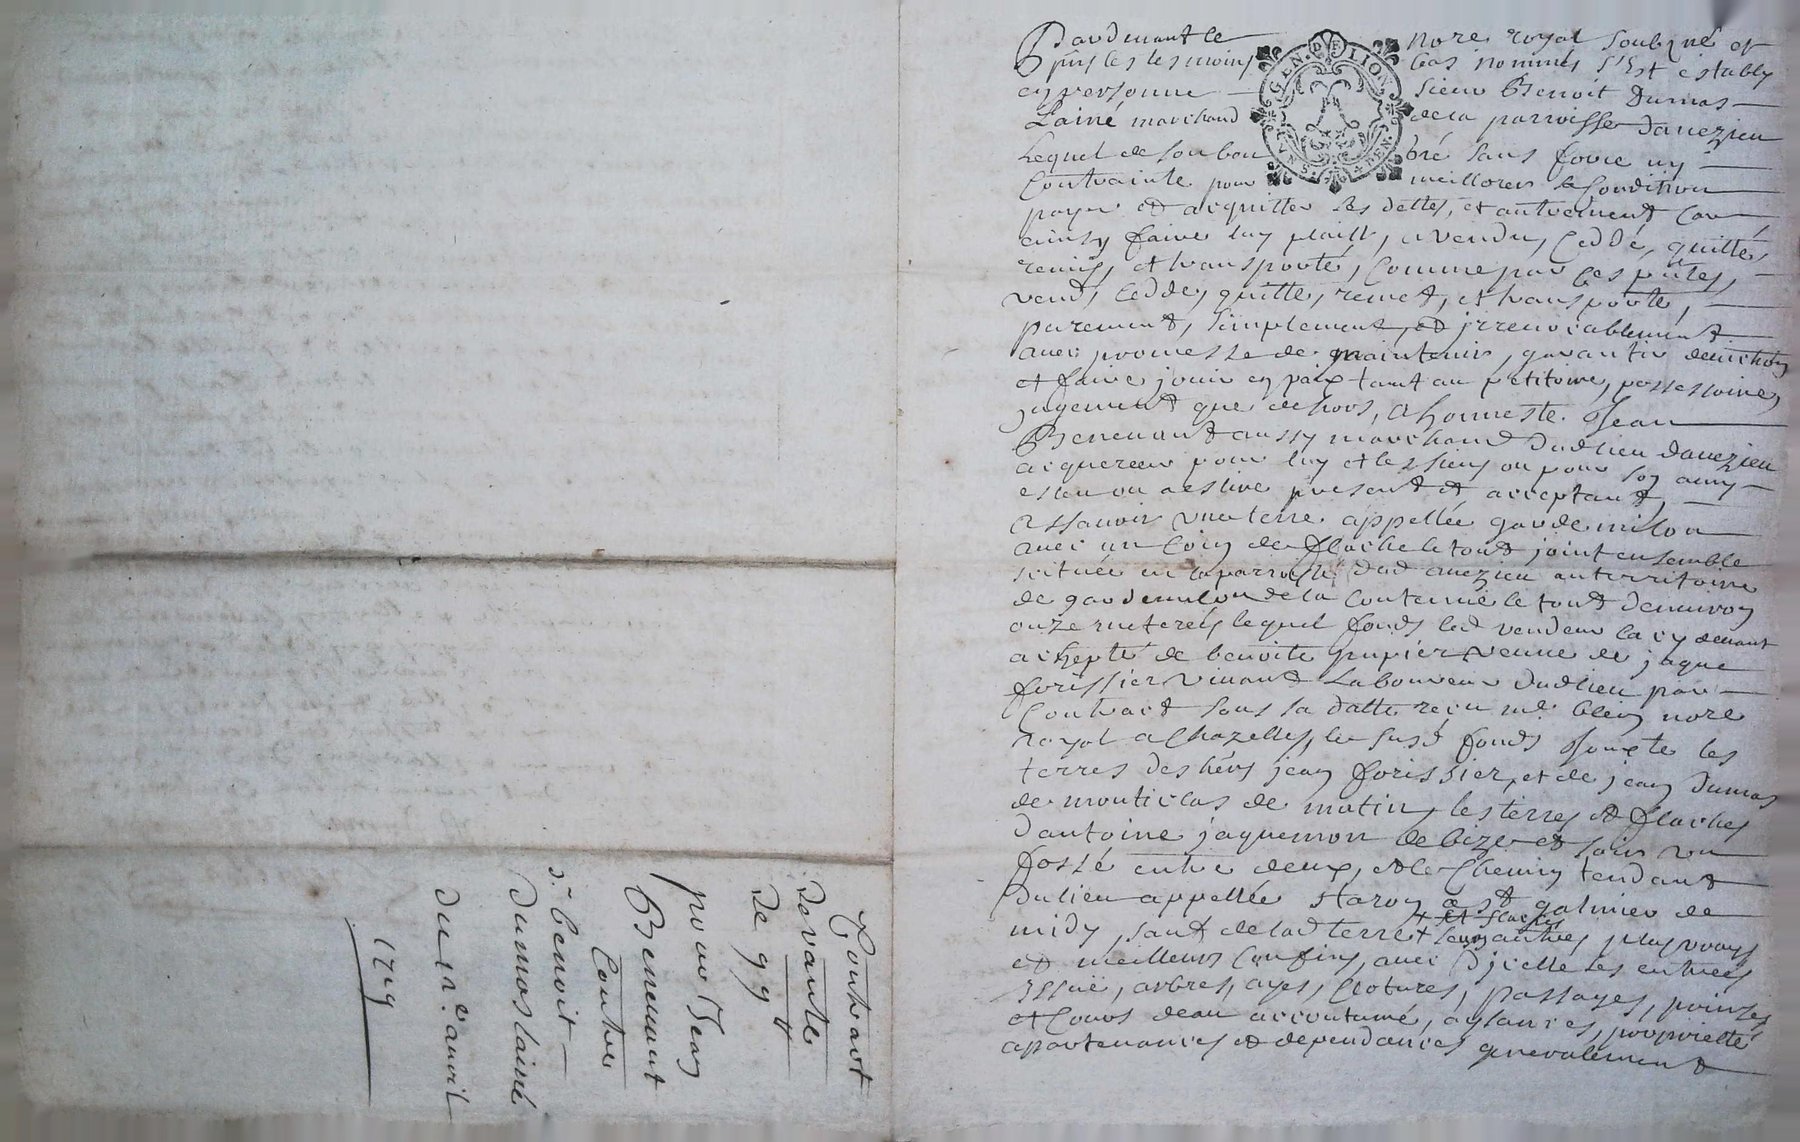 Pardevant le nore royal soubzné et
puis les tesmoins bas nommés s'est estably
en personne sieur Benoit Dumas
Lainé marchand de la parroisse davezieu
Lequel de son bon gré sans force ny
Contrainte pour meillorer sa Condition
payer et acquitter ses dettes, et autrement Car
ainsy faire luy plaist, a vendu, Ceddé, quitté,
remis, et transporté, Comme par ces pntes,
vend, Cedde, quitte, remet, et transporte,
purement, simplement, et irrevocablement
avec promesse de maintenir, garantir
et faire jouir en paix tant au petitoire, possessoire,
jugement que dehors, a honneste Jean
Benevant aussy marchand dudlieu davezieu
acquereur pour luy et les siens ou pour son amy
esleu ou a eslire present et acceptant,
Assavoir une terre appellée gardemilon
avec un Coin de flache le tout joint ensemble
scituée en la parroisse dud avezieu au territoire
de gardemilon de la Contenue le tout denviron
onze meterés lequel fonds led vendeur la cy devant
achepté de benoite pupier veuve de jaque
forissier vivant Laboureur dudlieu par
Contract sous sa datte reçu me blein nore
Royal a Chazelles, le susd fonds Jouxte les
terres des hers jean forissier, et de jean Dumas
de monticlas de matin, les terres et flaches
dantoine jaquemon de bize et soir un
fossé entre deux, et le Chemin tendant
du lieu appellée staron a st galmier de
midy, sauf de lad terre + et flache ses autres plus vrays
et meilleurs Confins, avec dicelle ses entrées
Issue, arbres, ayes, Clotures, passages, prinzes
et Cours deau accoutumé, aysances, proprietté
apartenances et dependances generalement
GEN. DE LION
Contract
de vante
de 99 tt
pour Jean
Benevant
Contre
sr. benoit
Dumas lainé
du 12e. avril
1729